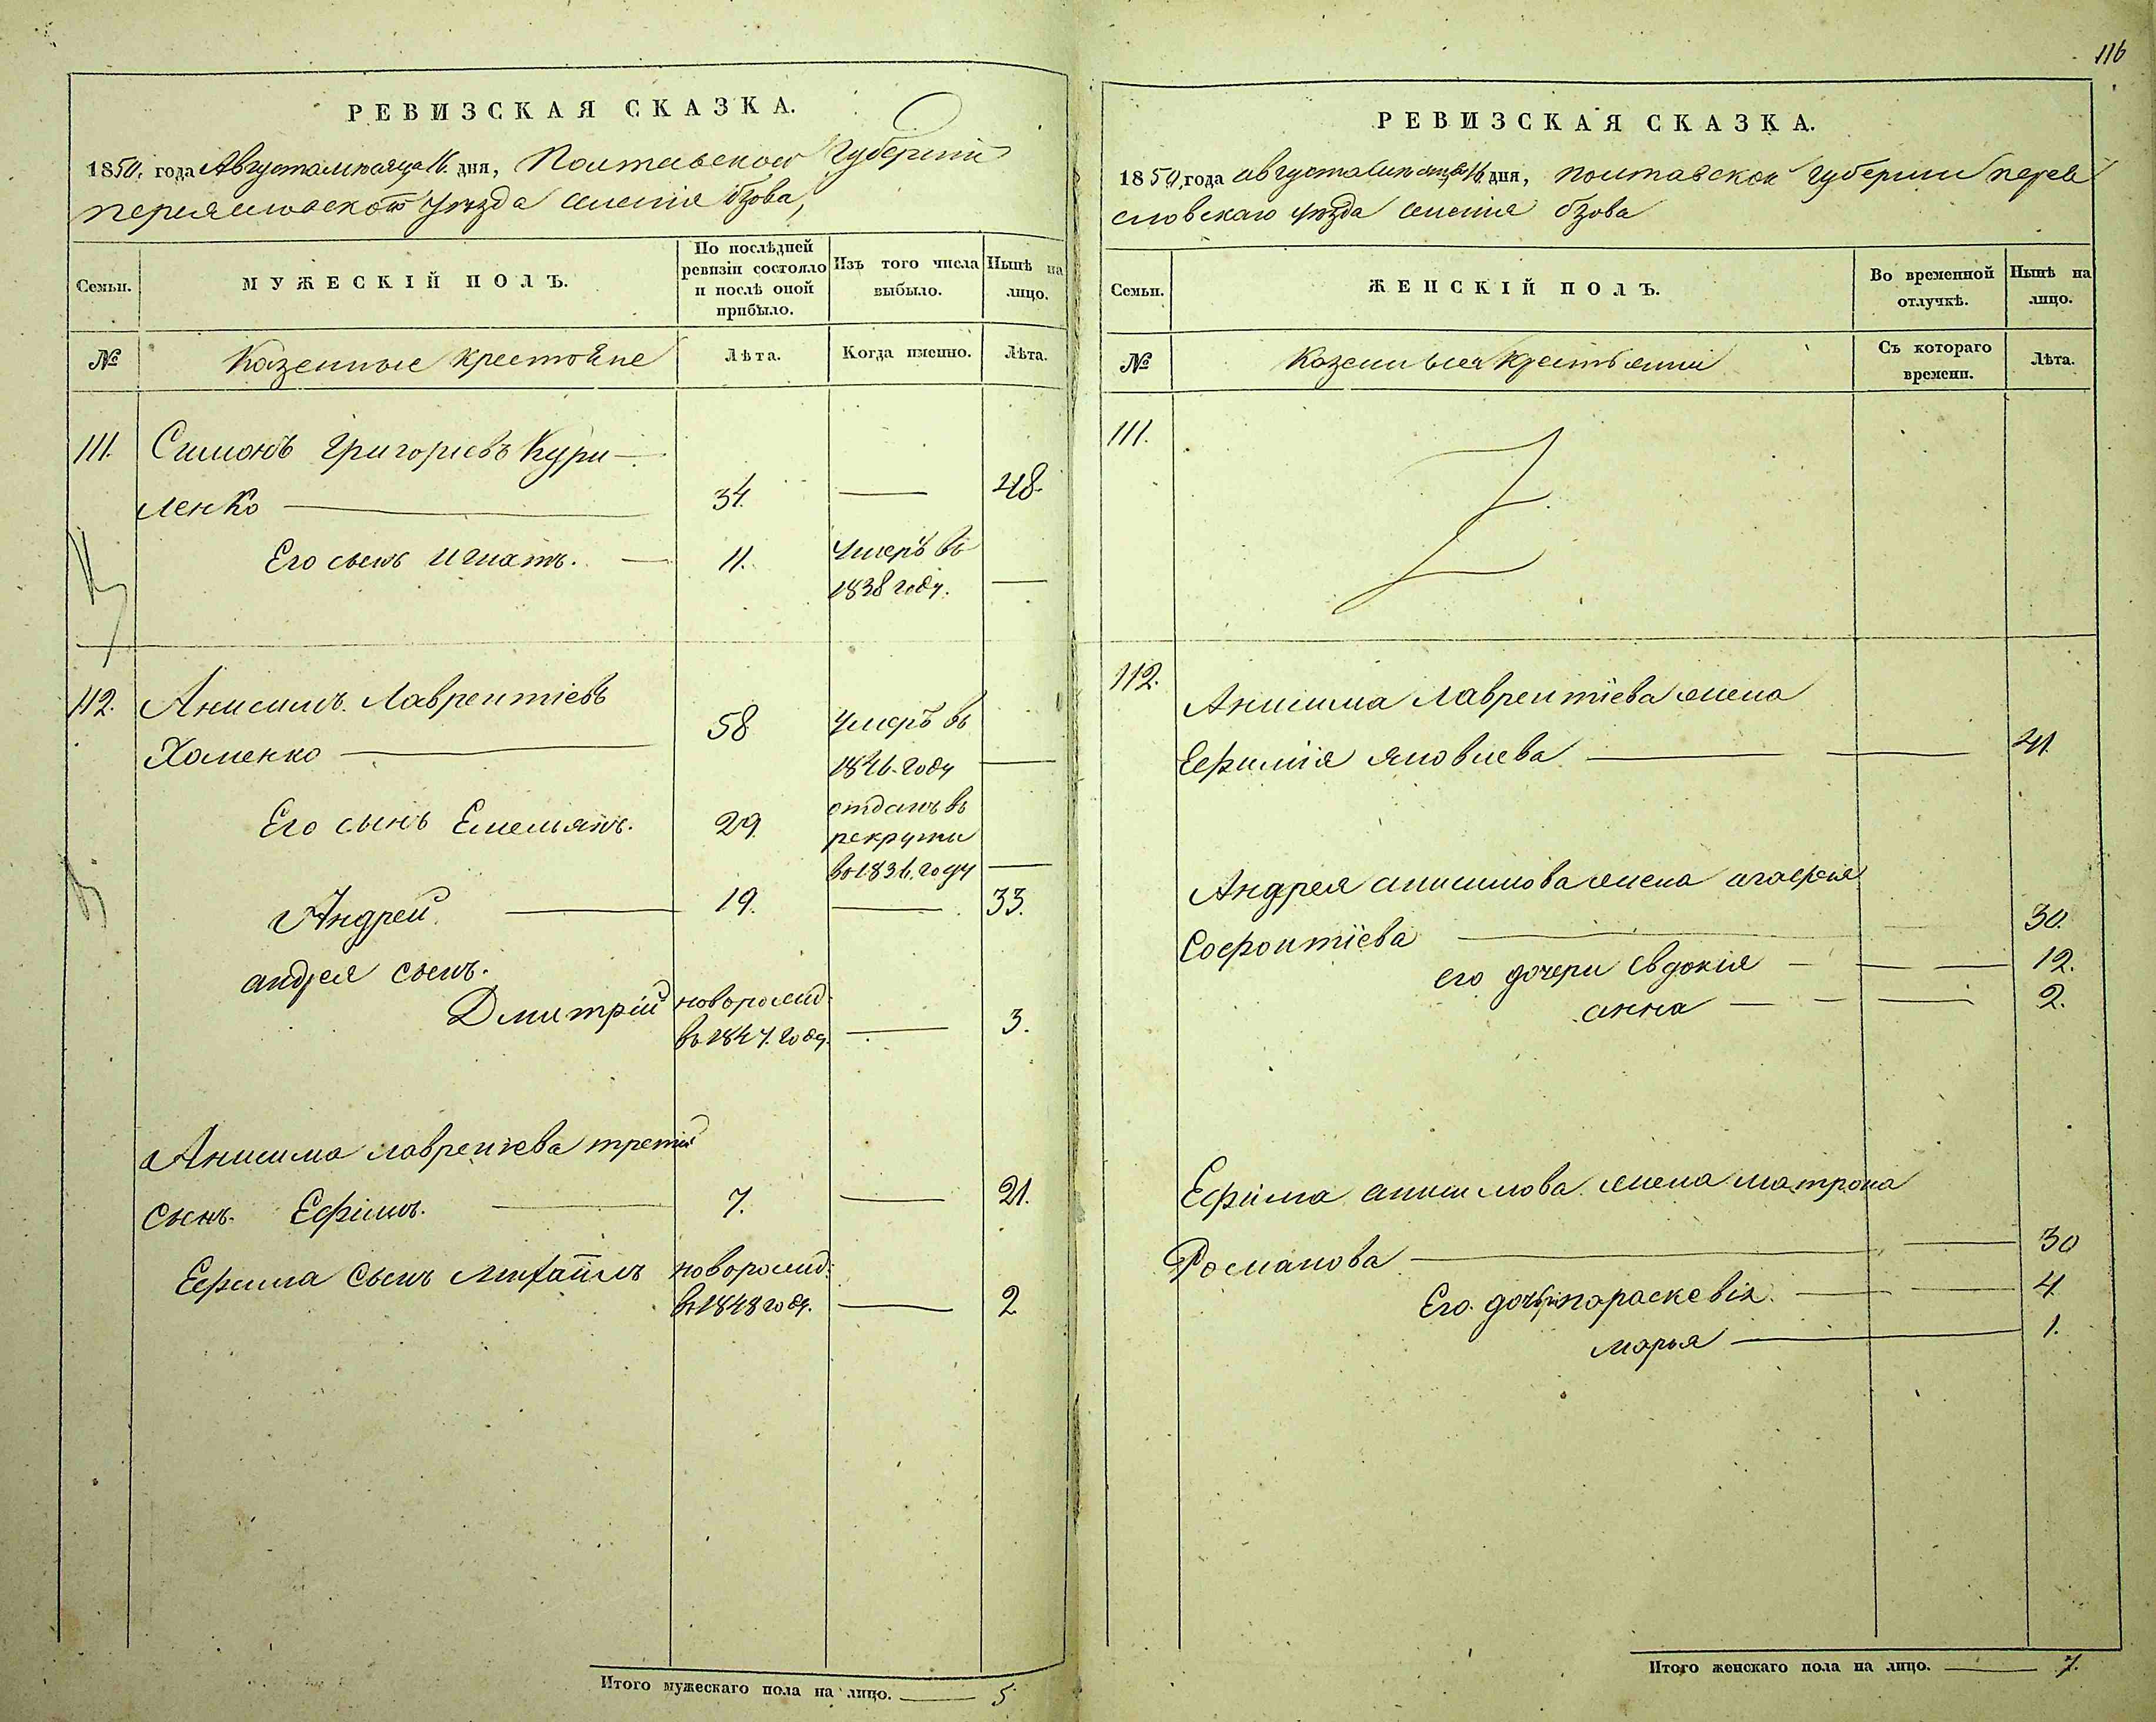 116
РЕВИЗСКАЯ СКАЗКА.
1850. года Августа месяца 16. дня, Полтавской Губерніи
Переяславского уѣзда селенія Бзова,
Семьи.
МУЖЕСКІЙ ПОЛЪ.
По послѣдней ревизіи состояло и послѣ оной прибыло.
Изъ того числа выбыло.
Нынѣ на лицо.
№
Казенные крестьяне
Лѣта.
Когда именно.
Лѣта.
111. Симонъ Григорьевъ Кури-
ленко 34. 48.
Его сынъ Игнатъ. 11. Умеръ въ
1838 году.
112. Анисимъ Лаврентіевъ
Хоменко 58 Умеръ въ
1846. году
Его сынъ Емельянъ. 29. отданъ въ
рекруты
въ 1836. году
Андрей 19. 33.
андрея сынъ.
Дмитрій новорожд:
въ 1847. году. 3.
Анисима лаврентіева третій
сынъ. Ефімъ. 7. 21.
Ефима сынъ Михаилъ новорожд:
въ 1848 году. 2
Итого мужескаго пола на лицо. 5
РЕВИЗСКАЯ СКАЗКА.
1850, года августа месяца 16 дня, полтавской губерніи перея
словскаго уѣзда селенія бзова
Семьи.
ЖЕНСКІЙ ПОЛЪ.
Во временной отлучкѣ.
Нынѣ на лицо.
№
Казенныя крестьянки
Съ котораго времени.
Лѣта.
111.
112. Анисима лаврентіева жена
Ефимія яковлева 41
Андрея анисимова жена агафія
Софонтіева 30.
его дочери Евдокія 12.
анна 2.
Ефіма анисимова жена матрона
Романова 30
Его дочери параскевія 4
марья 1.
Итого женскаго пола на лицо. 7.